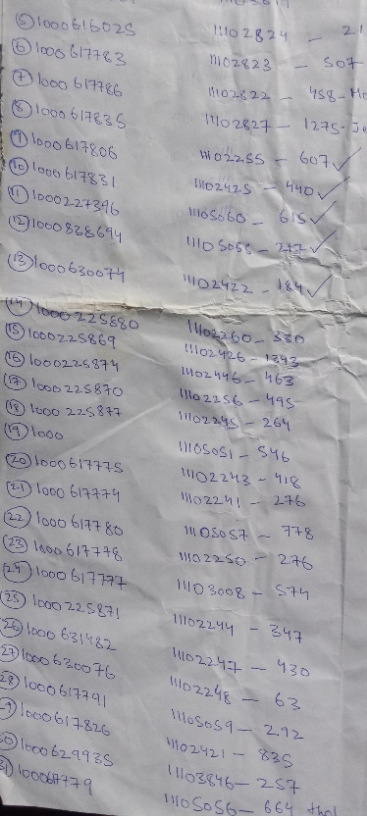 ⑤ 1000616025 11102824 - 21
⑥ 1000617783 11102823 - 507
⑦ 1000617786 11102822 - 458-Mo
⑧ 1000617835 11102827 - 1275-Ju
⑨ 1000617806 11102255 - 607 ✓
⑩ 1000617831 11102425 - 440 ✓
⑪ 1000227396 11105060 - 615 ✓
⑫ 1000838694 11105055 - 277 ✓
⑬ 1000630074 11102422 - 184 ✓
⑭ 1000225880 11102260 - 330
⑮ 1000225869 11102426 - 1343
⑯ 1000225874 11102446 - 463
⑰ 1000225870 11102256 - 495
⑱ 1000225877 11102245 - 264
⑲ 1000 11105051 - 546
⑳ 1000617775 11102243 - 418
㉑ 1000617774 11102241 - 276
㉒ 1000617780 11105057 - 778
㉓ 1000617778 11102250 - 276
㉔ 1000617777 11103008 - 574
㉕ 1000225871 11102244 - 347
㉖ 1000631482 11102247 - 430
㉗ 1000630076 11102248 - 63
28 1000617791 11105059 - 292
9 1000617826 11102421 - 835
30 1000629935 11103846 - 257
31 100067779 11105056 - 664 thal